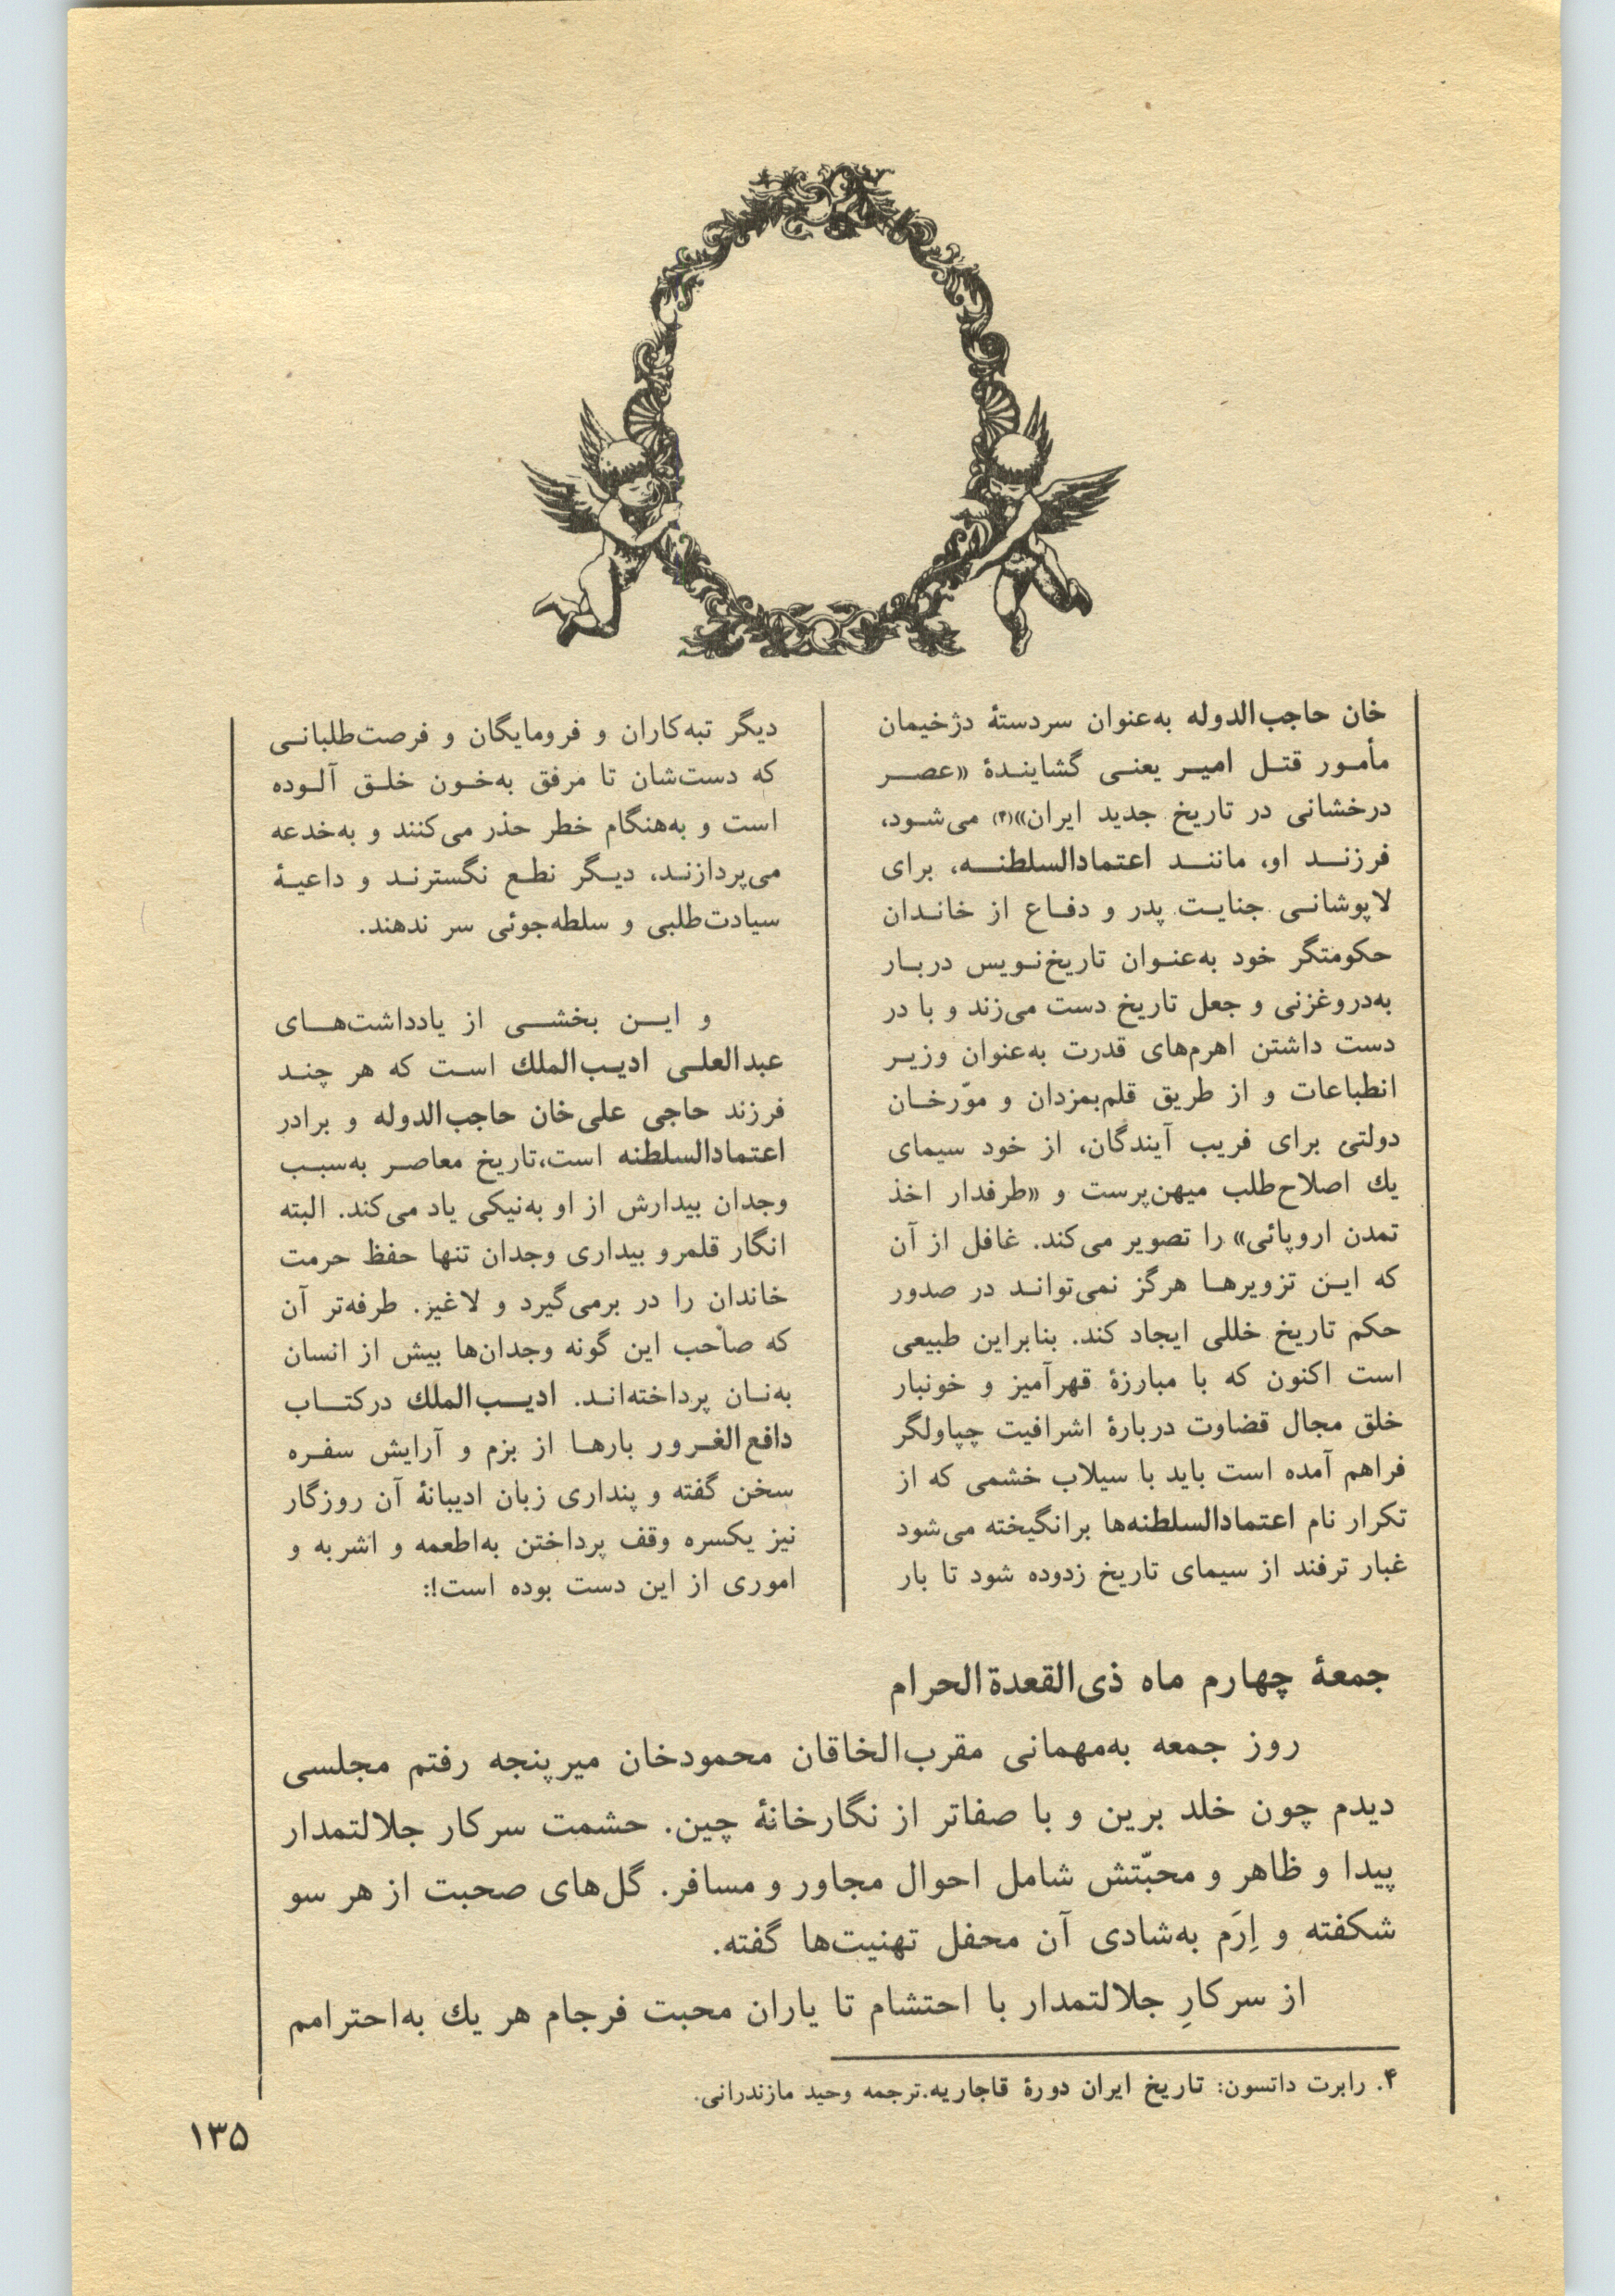 خان حاجب‌الدوله به‌عنوان سردستهٔ دژخیمان
مأمور قتل امیر یعنی گشایندهٔ «عصر
درخشانی در تاریخ جدید ایران»(۴) می‌شود،
فرزند او، مانند اعتمادالسلطنه، برای
لاپوشانی جنایت پدر و دفاع از خاندان
حکومتگر خود به‌عنوان تاریخ‌نویس دربار
به‌دروغزنی و جعل تاریخ دست می‌زند و با در
دست داشتن اهرم‌های قدرت به‌عنوان وزیر
انطباعات و از طریق قلم‌بمزدان و موّرخان
دولتی برای فریب آیندگان، از خود سیمای
یك اصلاح‌طلب میهن‌پرست و «طرفدار اخذ
تمدن اروپائی» را تصویر می‌کند. غافل از آن
که این تزویرها هرگز نمی‌تواند در صدور
حکم تاریخ خللی ایجاد کند. بنابراین طبیعی
است اکنون که با مبارزهٔ قهرآمیز و خونبار
خلق مجال قضاوت دربارهٔ اشرافیت چپاولگر
فراهم آمده است باید با سیلاب خشمی که از
تکرار نام اعتمادالسلطنه‌ها برانگیخته می‌شود
غبار ترفند از سیمای تاریخ زدوده شود تا بار
دیگر تبه‌کاران و فرومایگان و فرصت‌طلبانی
که دست‌شان تا مرفق به‌خون خلق آلوده
است و به‌هنگام خطر حذر می‌کنند و به‌خدعه
می‌پردازند، دیگر نطع نگسترند و داعیهٔ
سیادت‌طلبی و سلطه‌جوئی سر ندهند.
و این بخشی از یادداشت‌های
عبدالعلی ادیب‌الملك است که هر چند
فرزند حاجی علی‌خان حاجب‌الدوله و برادر
اعتمادالسلطنه است،تاریخ معاصر به‌سبب
وجدان بیدارش از او به‌نیکی یاد می‌کند. البته
انگار قلمرو بیداری وجدان تنها حفظ حرمت
خاندان را در برمی‌گیرد و لاغیز. طرفه‌تر آن
که صاحب این گونه وجدان‌ها بیش از انسان
به‌نان پرداخته‌اند. ادیب‌الملك درکتاب
دافع‌الغرور بارها از بزم و آرایش سفره
سخن گفته و پنداری زبان ادیبانهٔ آن روزگار
نیز یکسره وقف پرداختن به‌اطعمه و اشربه و
اموری از این دست بوده است!:
جمعهٔ چهارم ماه ذی‌القعدة‌الحرام
روز جمعه به‌مهمانی مقرب‌الخاقان محمودخان میرپنجه رفتم مجلسی
دیدم چون خلد برین و با صفاتر از نگارخانهٔ چین. حشمت سرکار جلالتمدار
پیدا و ظاهر و محبّتش شامل احوال مجاور و مسافر. گل‌های صحبت از هر سو
شکفته و اِرَم به‌شادی آن محفل تهنیت‌ها گفته.
از سرکارِ جلالتمدار با احتشام تا یاران محبت فرجام هر یك به‌احترامم
۴. رابرت داتسون: تاریخ ایران دورهٔ قاجاریه.ترجمه وحید مازندرانی.
۱۳۵